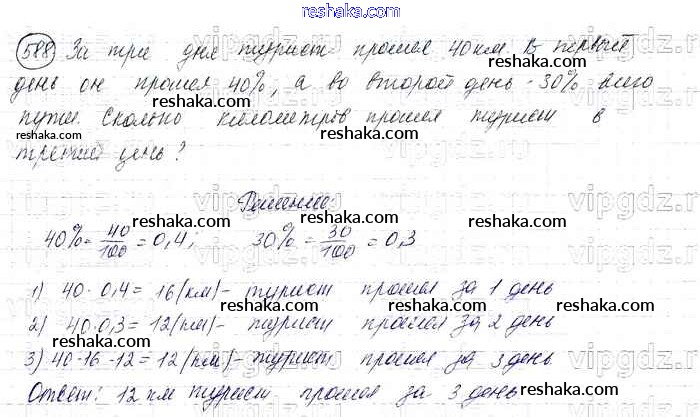 reshaka.com
588 За три дня турист прошел 40 км. В первый
reshaka.com
день он прошел 40%, а во второй день - 30% всего
reshaka.com
пути. Сколько километров прошел турист в
третий день?
reshaka.com
Решение:
reshaka.com reshaka.com
40% = 40/100 = 0,4; 30% = 30/100 = 0,3
reshaka.com
1) 40 · 0,4 = 16 (км) - турист прошел за 1 день
reshaka.com reshaka.com
2) 40 · 0,3 = 12 (км) - турист прошел за 2 день
reshaka.com
3) 40 - 16 - 12 = 12 (км) - турист прошел за 3 день
reshaka.com
Ответ: 12 км турист прошел за 3 день
reshaka.com
vipgdz.ru
vipgdz.ru
vipgdz.ru
vipgdz.ru
vipgdz.ru
vipgdz.ru